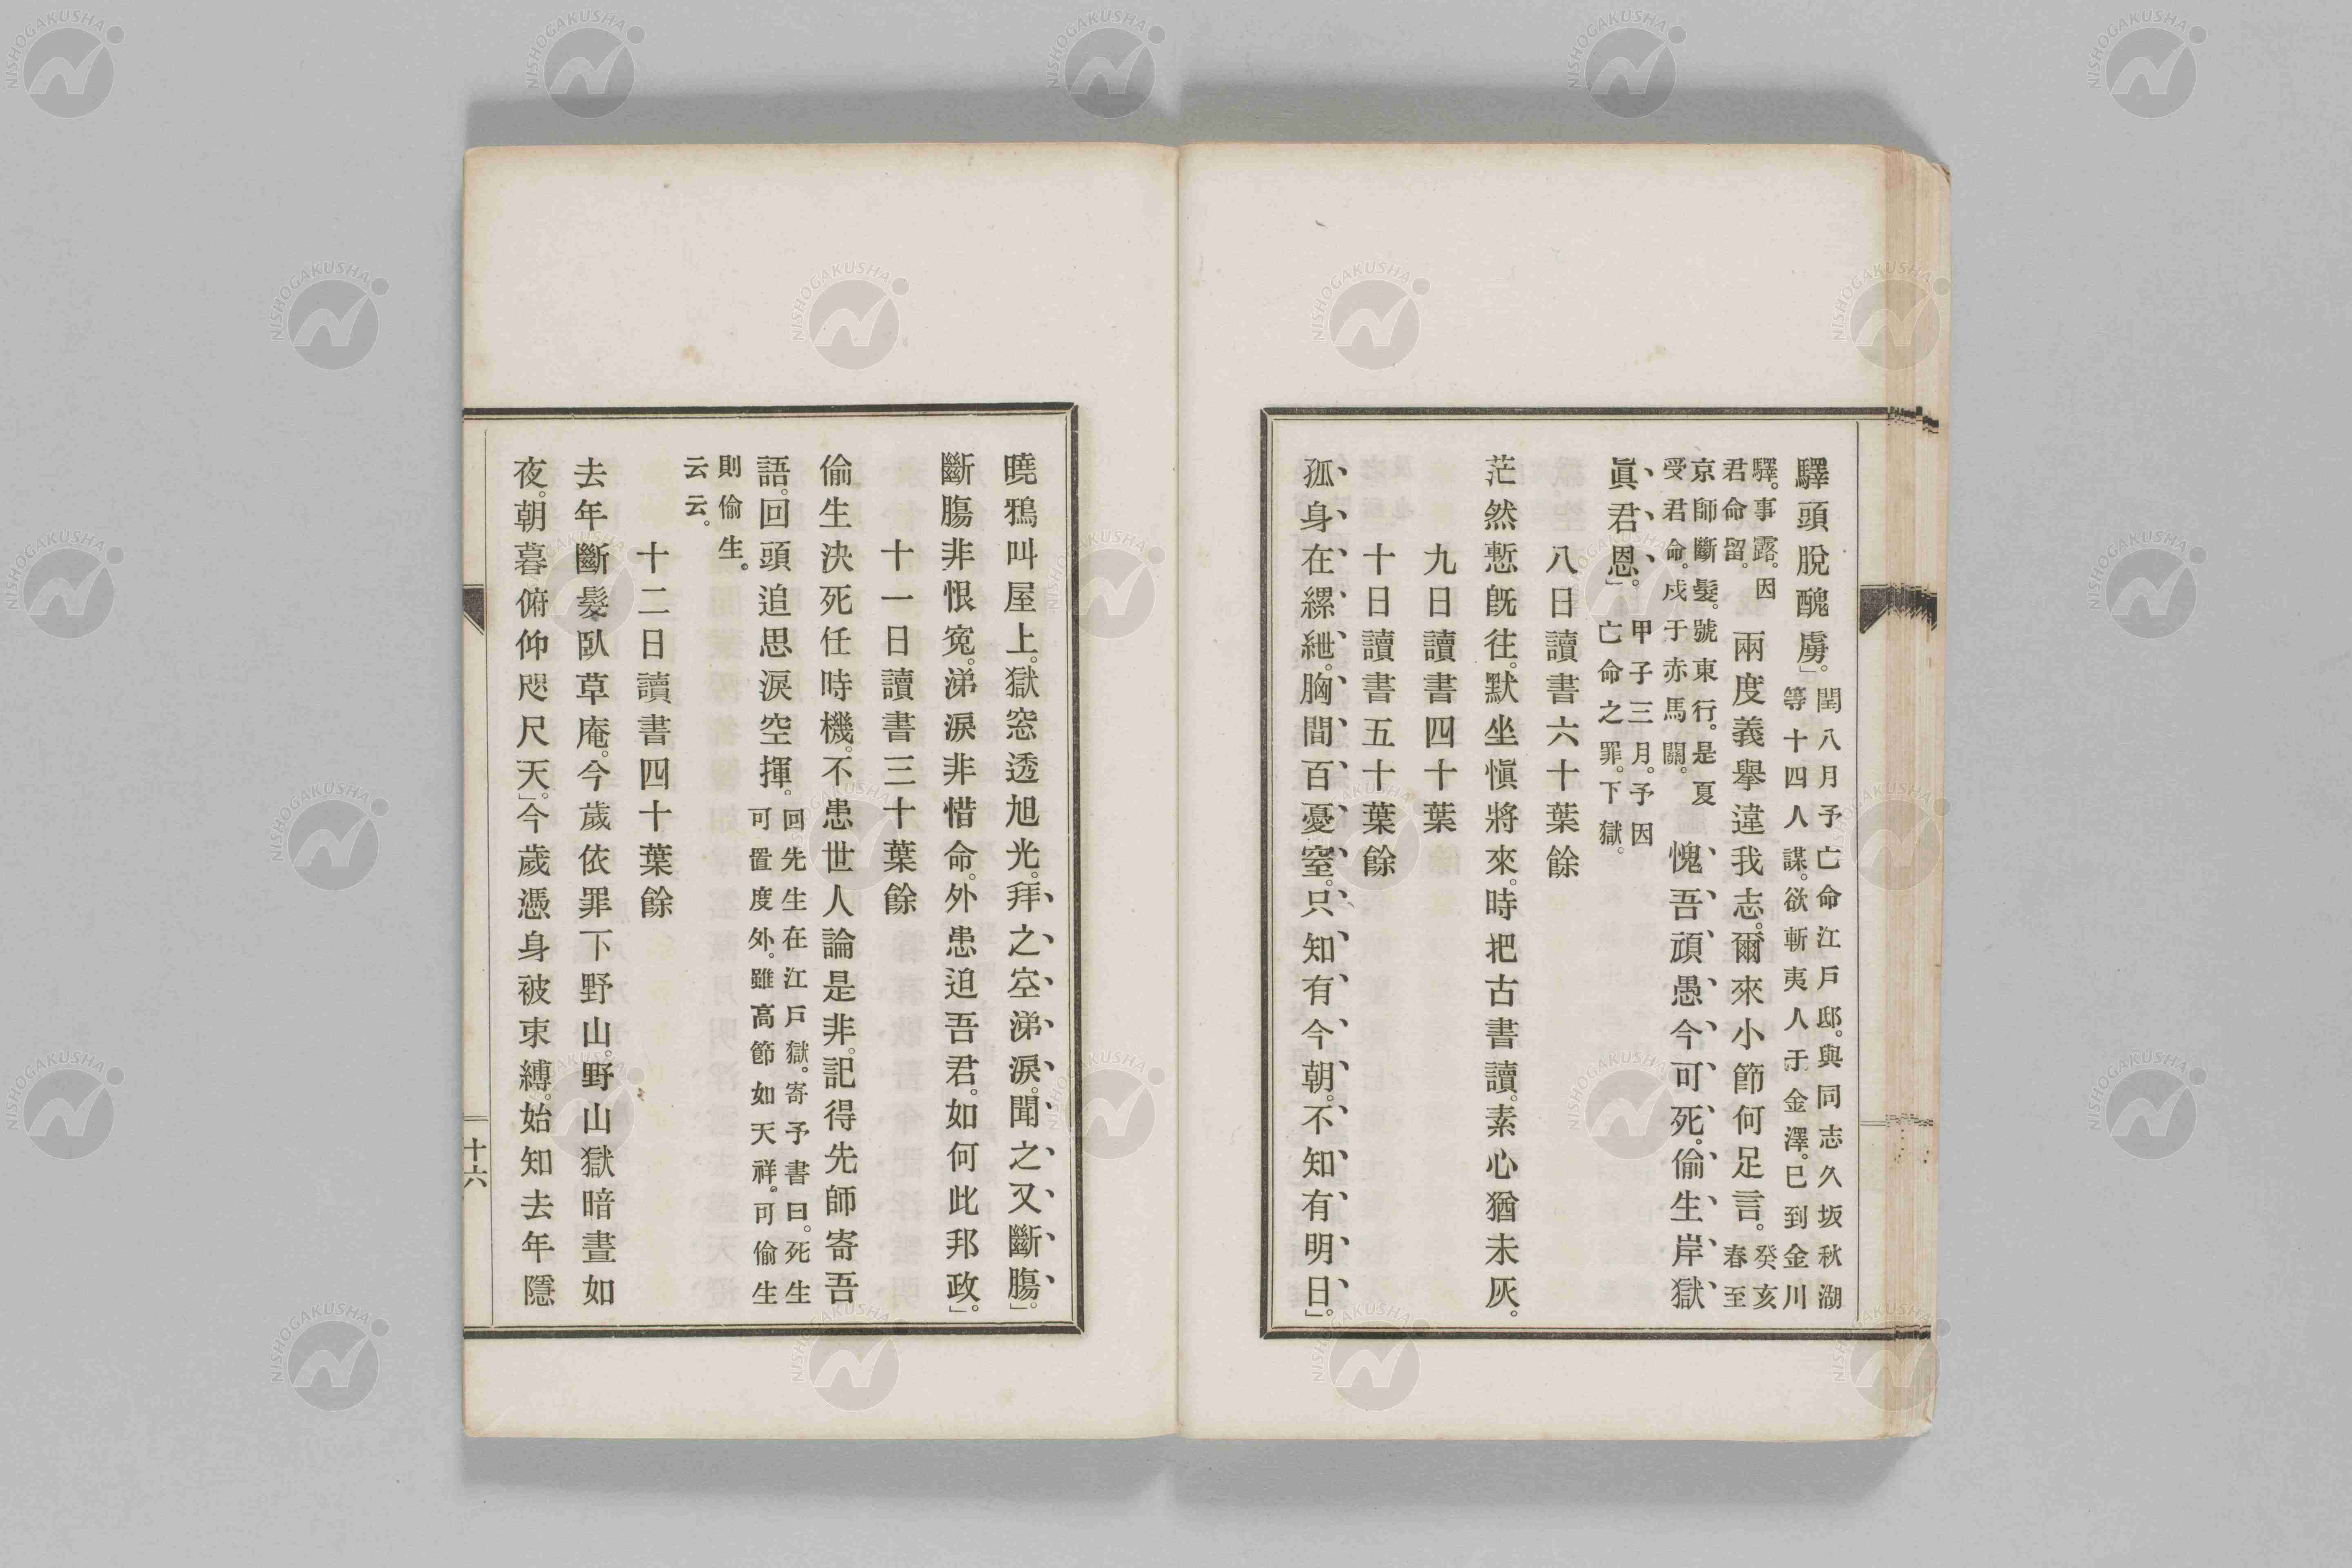 驛頭脫醜虜。」閏八月予亡命江戶邸。與同志久坂秋湖等十四人謀。欲斬夷人于金澤。已到金川
驛。事露。因君命留。兩度義擧違我志。爾來小節何足言。癸亥春至
京師斷髮。號東行。是夏受君命。戍于赤馬關。愧吾頑愚今可死。偷生岸獄
眞君恩。」甲子三月。予因亡命之罪。下獄。
八日讀書六十葉餘
茫然慙旣往。默坐愼將來。時把古書讀。素心猶未灰。
九日讀書四十葉
十日讀書五十葉餘
孤身在縲紲。胸間百憂窒。只知有今朝。不知有明日。」
曉鴉叫屋上。獄窓透旭光。拜之空涕淚。聞之又斷腸。」
斷腸非恨寃。涕淚非惜命。外患迫吾君。如何此邦政。」
十一日讀書三十葉餘
偷生決死任時機。不患世人論是非。記得先師寄吾
語。回頭追思淚空揮。回先生在江戶獄。寄予書曰。死生可置度外。雖高節如天祥。可偷生
則偷生。云云。
十二日讀書四十葉餘
去年斷髮臥草庵。今歲依罪下野山。野山獄暗晝如
夜。朝暮俯仰咫尺天。」今歲憑身被束縛。始知去年隱
十六
NISHOGAKUSHA